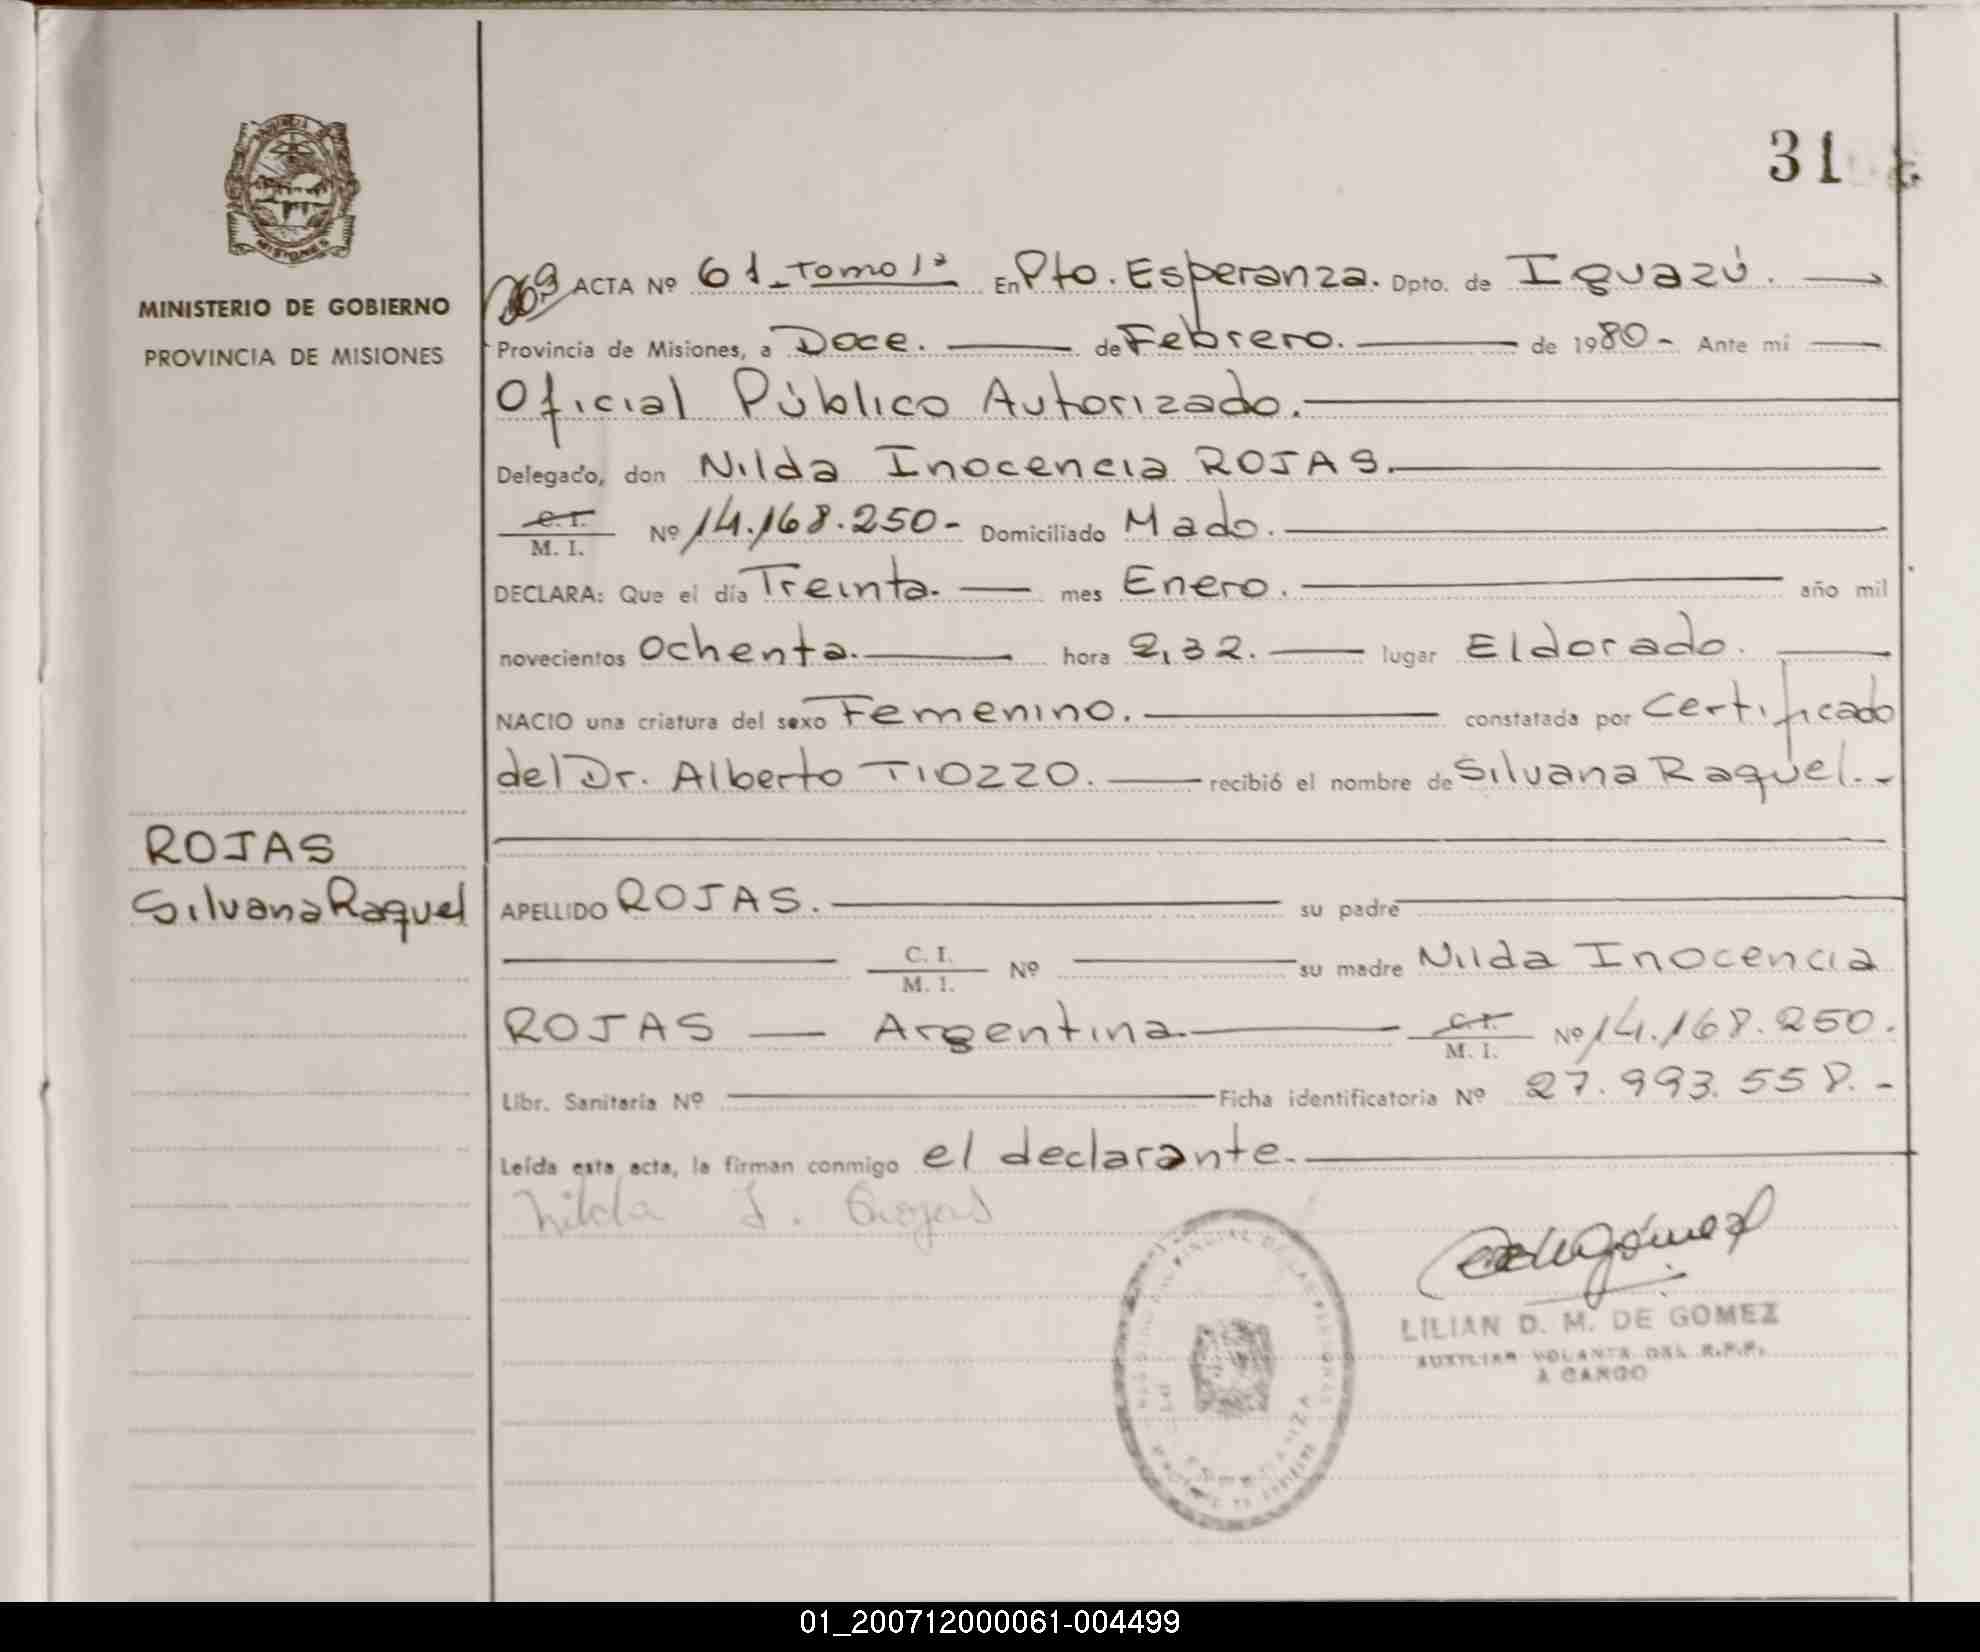 31
MINISTERIO DE GOBIERNO
PROVINCIA DE MISIONES
ACTA Nº 61 - Tomo 1º En Pto. Esperanza. Dpto. de Iguazú.
Provincia de Misiones, a Doce. de Febrero. de 1980- Ante mí
Oficial Público Autorizado.
Delegado, don Nilda Inocencia ROJAS.
C. I.
M. I. Nº 14.168.250- Domiciliado Mado.
DECLARA: Que el día Treinta. mes Enero. año mil
novecientos Ochenta. hora 2,32. lugar Eldorado.
NACIO una criatura del sexo Femenino. constatada por Certificado
del Dr. Alberto TIOZZO. recibió el nombre de Silvana Raquel.-
ROJAS
Silvana Raquel
APELLIDO ROJAS. su padre
C. I.
M. I. Nº su madre Nilda Inocencia
ROJAS — Argentina. C. I.
M. I. Nº 14.168.250.
Libr. Sanitaria Nº Ficha identificatoria Nº 27.993.558.-
Leída esta acta, la firman conmigo el declarante.
Nilda I. Rojas
LILIAN D. M. DE GOMEZ
AUXILIAR VOLANTE DEL R.P.P.
A CARGO
01_200712000061-004499